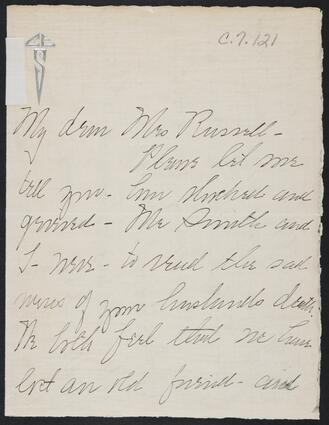 C.7.121
My dear Mrs Russell -
Please let me
tell you - how shocked and
grieved - Mr Smith and
I - were - to read the sad
news of your husbands death.
We both feel that we have
lost an old friend - and